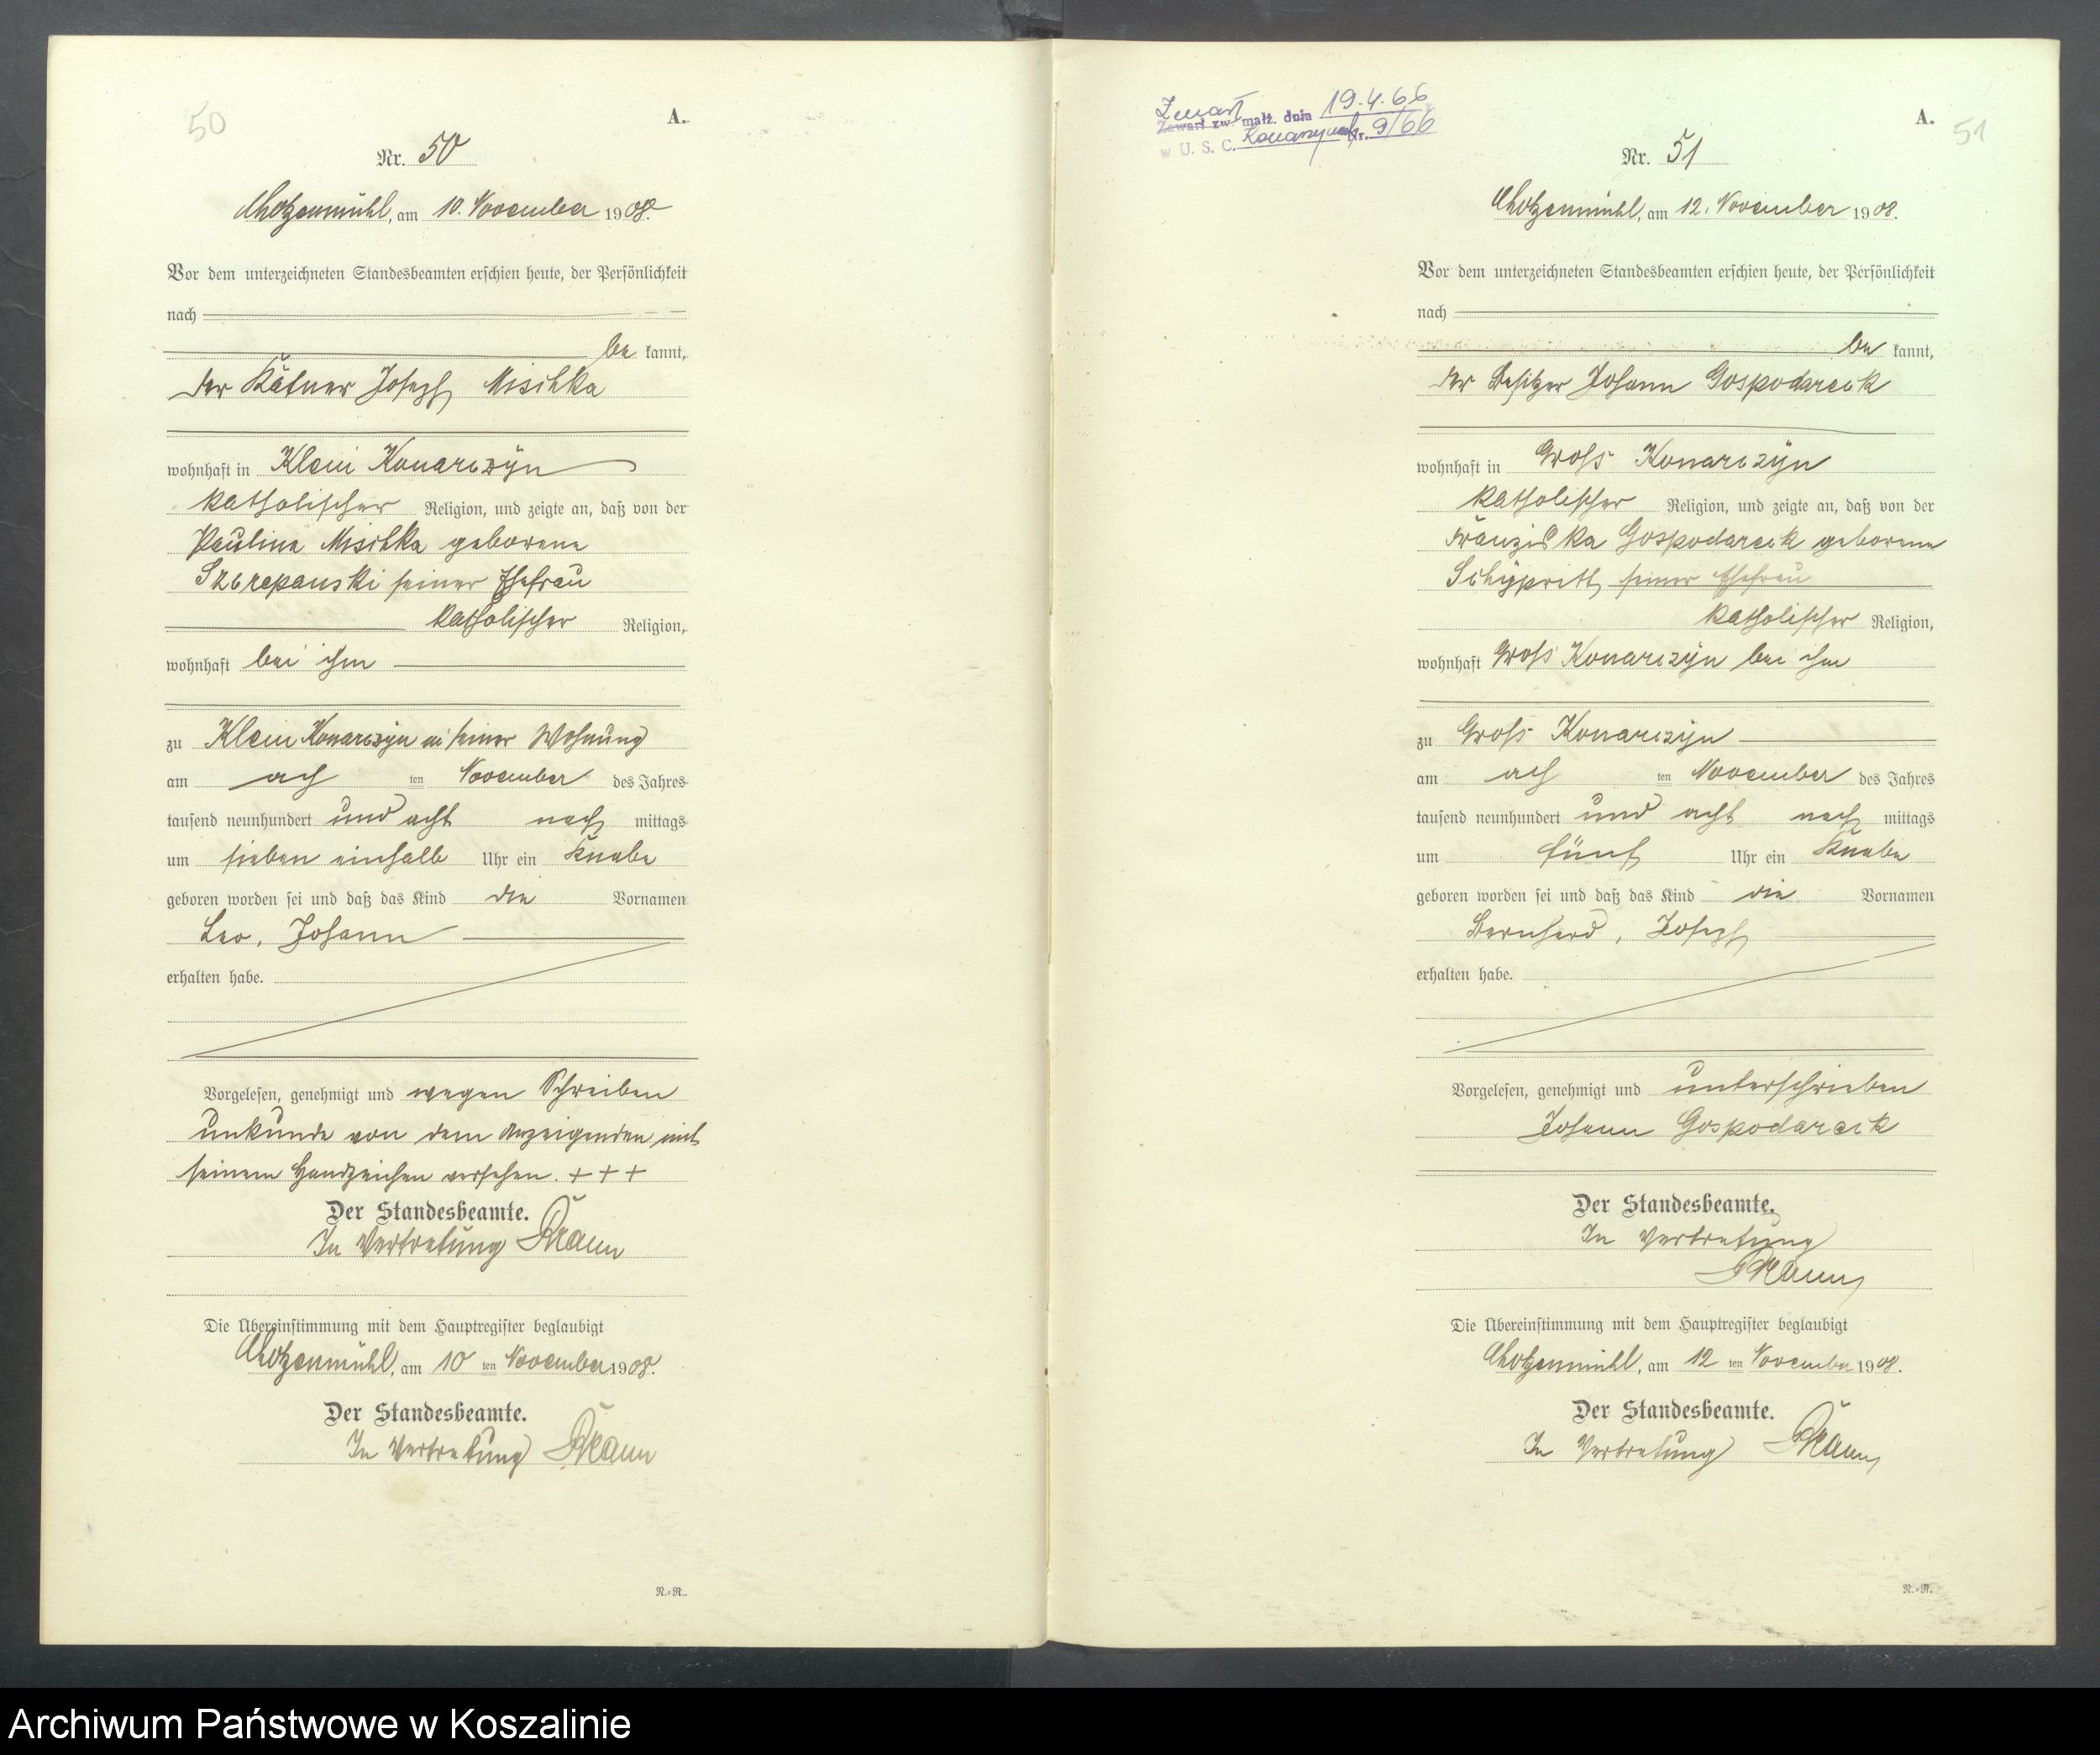 50
A.
Nr. 50
Chotzenmühl, am 10. November 1908.
Vor dem unterzeichneten Standesbeamten erschien heute, der Persönlichkeit
nach
be kannt,
der Kätner Joseph Mischka
wohnhaft in Klein Konarczyn
katholischer Religion, und zeigte an, daß von der
Pauline Mischka geborene
Szczepanski seiner Ehefrau
katholischer Religion,
wohnhaft bei ihm
zu Klein Konarczyn in seiner Wohnung
am ach ten November des Jahres
tausend neunhundert und acht nach mittags
um sieben einhalb Uhr ein Knabe
geboren worden sei und daß das Kind die Vornamen
Leo, Johann
erhalten habe.
Vorgelesen, genehmigt und wegen Schreiben
unkunde von dem Anzeigenden mit
seinem Handzeichen versehen. + + +
Der Standesbeamte.
In Vertretung
Die Übereinstimmung mit dem Hauptregister beglaubigt
Chotzenmühl, am 10 ten November 1908.
Der Standesbeamte.
In Vertretung
N.=R.
Zmarł 19.4.66
Zawarł zw. małż. dnia
w U. S. C. Nr. 9/66
A.
51
Nr. 51
Chotzenmühl, am 12. November 1908.
Vor dem unterzeichneten Standesbeamten erschien heute, der Persönlichkeit
nach
be kannt,
der Besitzer Johann Gospodarek
wohnhaft in Gross Konarczyn
katholischer Religion, und zeigte an, daß von der
Franziska Gospodarek geborene
seiner Ehefrau
katholischer Religion,
wohnhaft Gross Konarczyn bei ihm
zu Gross Konarczyn
am ach ten November des Jahres
tausend neunhundert und acht nach mittags
um fünf Uhr ein Knabe
geboren worden sei und daß das Kind die Vornamen
Bernhard, Joseph
erhalten habe.
Vorgelesen, genehmigt und unterschrieben
Johann Gospodarek
Der Standesbeamte.
In Vertretung
Die Übereinstimmung mit dem Hauptregister beglaubigt
Chotzenmühl, am 12 ten November 1908.
Der Standesbeamte.
In Vertretung
N.=R.
Archiwum Państwowe w Koszalinie